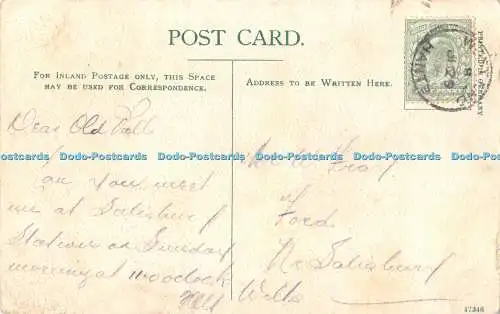 POST CARD.
FOR INLAND POSTAGE ONLY, THIS SPACE
MAY BE USED FOR CORRESPONDENCE.
ADDRESS TO BE WRITTEN HERE.
PRINTED IN GERMANY
Dear Old
can you meet
me at Salisbury
Station on Sunday
morning at
of
Ford
Nr Salisbury
Wilts
Dodo-Postcards Dodo-Postcards Dodo-Postcards Dodo-Postcards Dodo-Postcards
17346